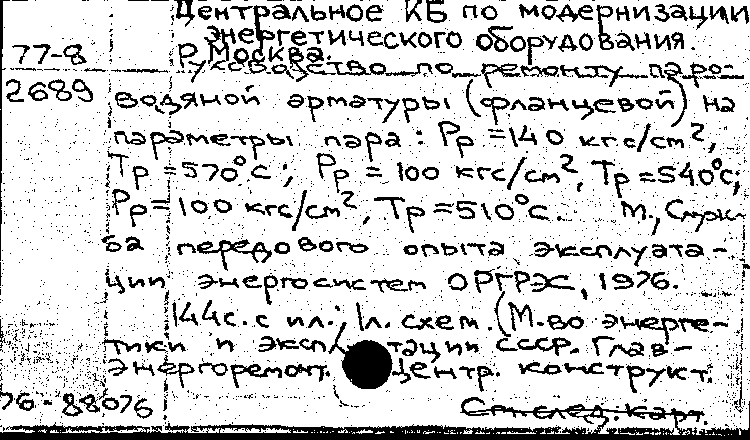 Центральное КБ по модернизации
энергетического оборудования.
Москва.
77-8
Руководство по ремонту паро-
2689
водяной арматуры (фланцевой) на
параметры пара: Рр=140 кгс/см²,
Тр=570°С; Рр=100 кгс/см², Тр=540°С;
Рр=100 кгс/см², Тр=510°С. М., Служ-
ба передового опыта эксплуата-
ции энергосистем ОРГРЭС, 1976.
144с. с ил.; 1л. схем. (М-во энерге-
тики и эксплуатации СССР. Глав-
энергоремонт. Центр. конструкт.
76-88076
См.след.карт.